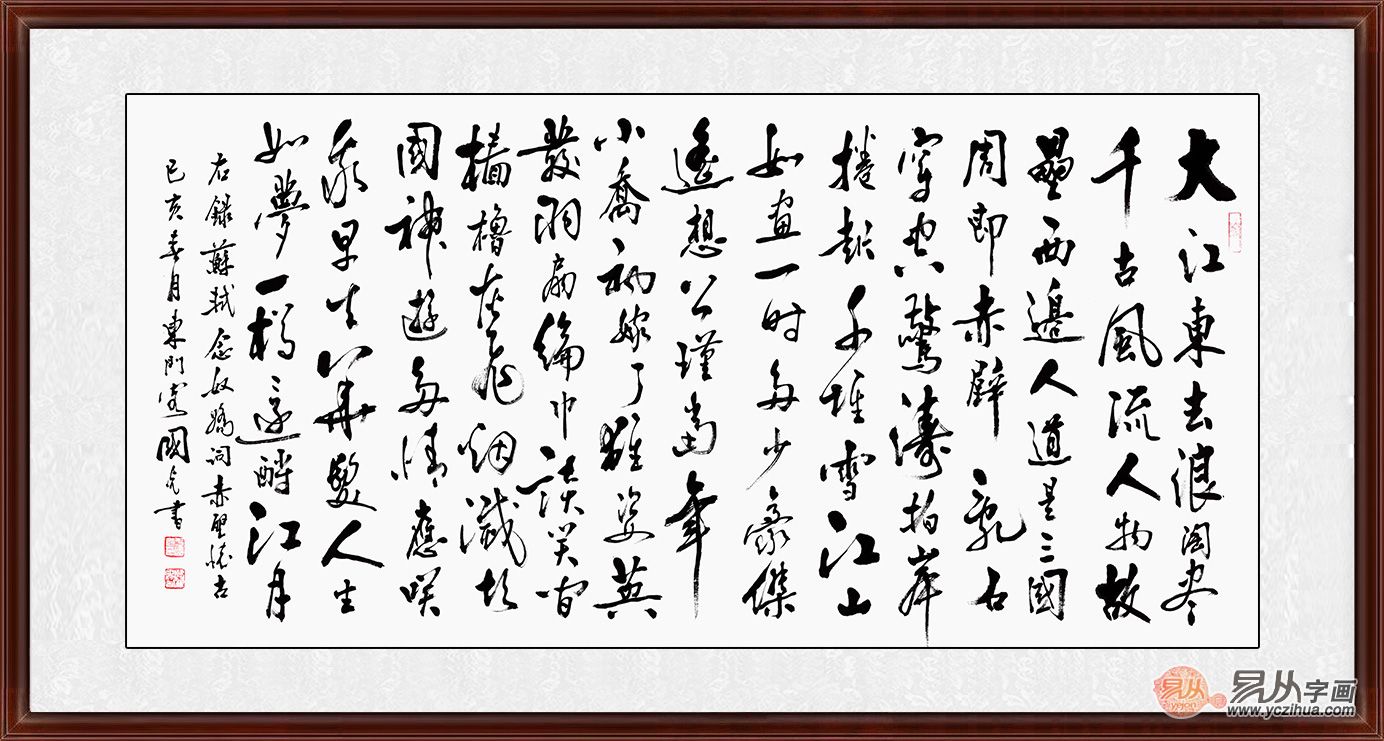 大江東去浪淘尽
千古風流人物故
壘西邊人道是三國
周郎赤壁乱石
穿空驚濤拍岸
捲起千堆雪江山
如畫一时多少豪傑
遙想公瑾當年
小喬初嫁了雄姿英
發羽扇綸巾談笑间
檣櫓灰飛烟滅故
國神遊多情應咲
我早生華髮人生
如夢一樽還酹江月
右錄蘇軾念奴嬌詞赤壁懷古
己亥春月東門客國書
易从
易从字画
www.yczihua.com